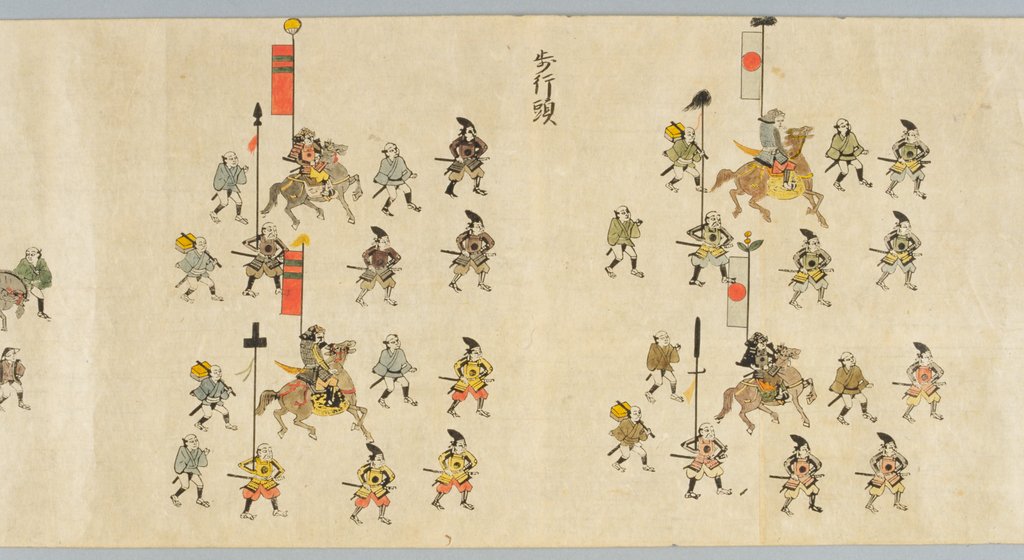 歩行頭